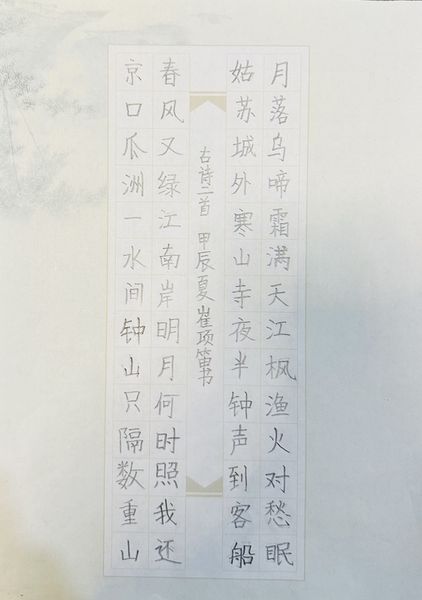 月落乌啼霜满天江枫渔火对愁眠
姑苏城外寒山寺夜半钟声到客船
古诗二首 甲辰夏 崔项笛书
春风又绿江南岸明月何时照我还
京口瓜洲一水间钟山只隔数重山